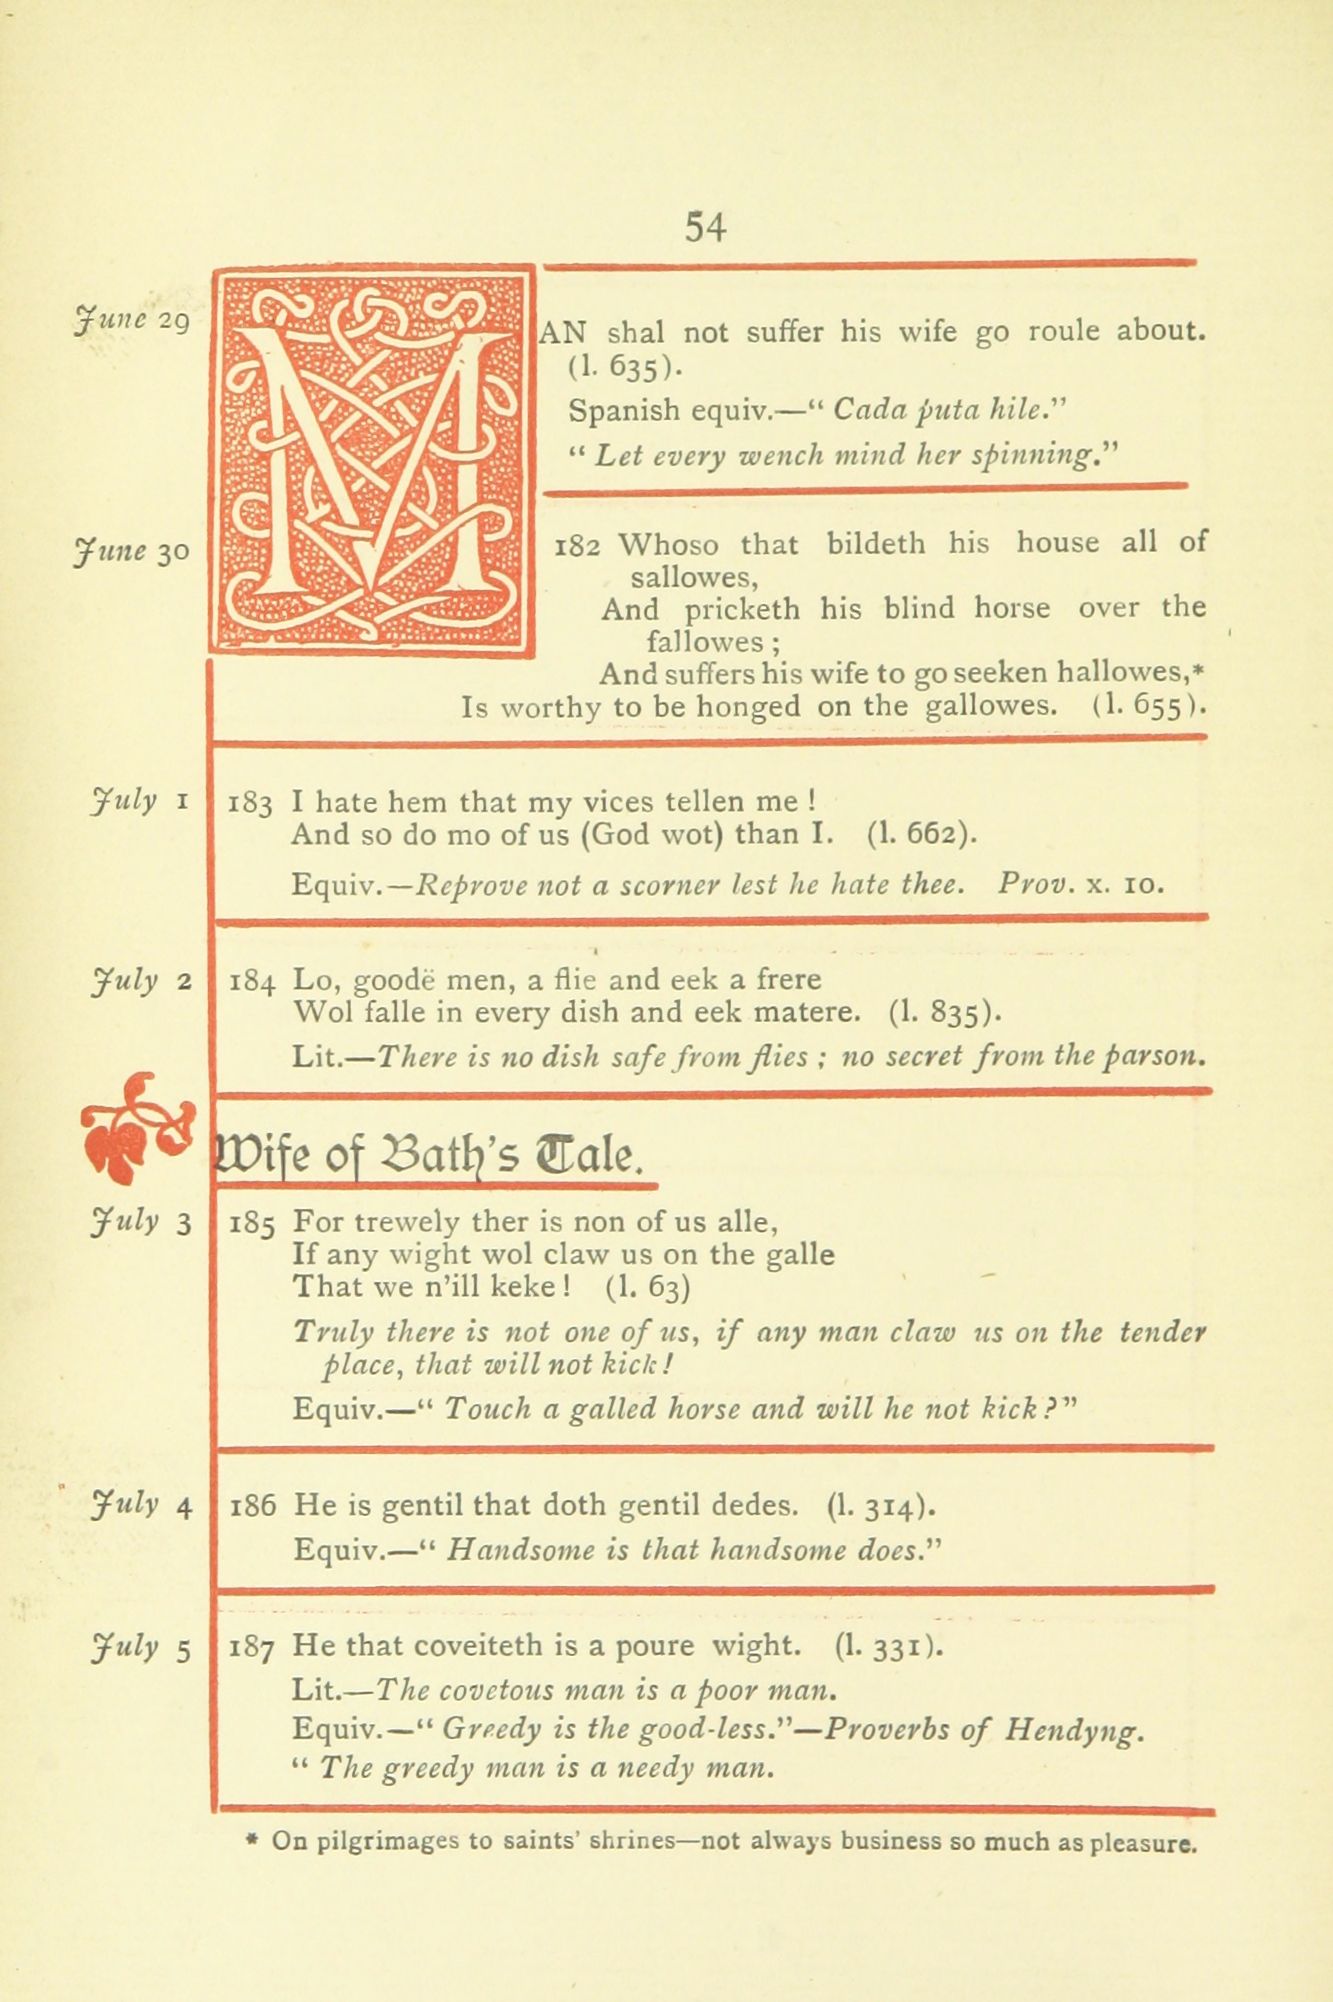 54
June 29
MAN shal not suffer his wife go roule about.
(l. 635).
Spanish equiv.—“ Cada puta hile.”
“ Let every wench mind her spinning.”
June 30
182 Whoso that bildeth his house all of
sallowes,
And pricketh his blind horse over the
fallowes ;
And suffers his wife to go seeken hallowes,*
Is worthy to be honged on the gallowes. (l. 655).
July 1
183 I hate hem that my vices tellen me !
And so do mo of us (God wot) than I. (l. 662).
Equiv.—Reprove not a scorner lest he hate thee. Prov. x. 10.
July 2
184 Lo, goodë men, a flie and eek a frere
Wol falle in every dish and eek matere. (l. 835).
Lit.—There is no dish safe from flies ; no secret from the parson.
Wife of Bath's Tale.
July 3
185 For trewely ther is non of us alle,
If any wight wol claw us on the galle
That we n'ill keke ! (l. 63)
Truly there is not one of us, if any man claw us on the tender
place, that will not kick !
Equiv.—“ Touch a galled horse and will he not kick ?”
July 4
186 He is gentil that doth gentil dedes. (l. 314).
Equiv.—“ Handsome is that handsome does.”
July 5
187 He that coveiteth is a poure wight. (l. 331).
Lit.—The covetous man is a poor man.
Equiv.—“ Greedy is the good-less.”—Proverbs of Hendyng.
“ The greedy man is a needy man.
* On pilgrimages to saints' shrines—not always business so much as pleasure.